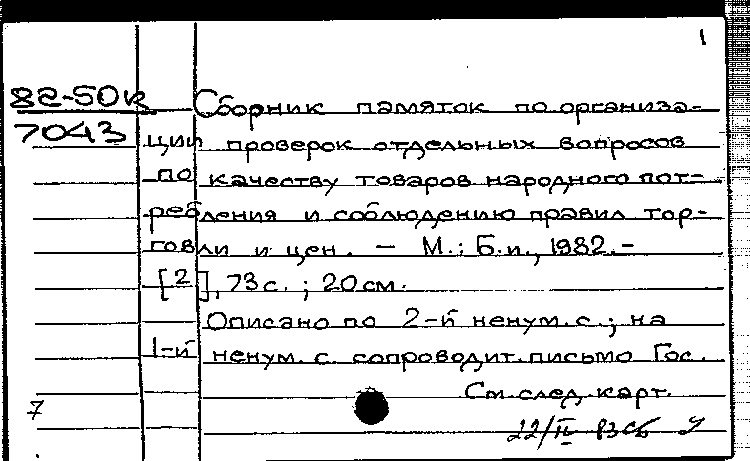 1
82-50к
7043
Сборник памяток по организа-
ции проверок отдельных вопросов
по качеству товаров народного пот-
ребления и соблюдению правил тор-
говли и цен. – М.: Б.и., 1982.-
[2], 73 с. ; 20 см.
Описано по 2-й ненум. с.; на
1-й ненум. с. сопроводит. письмо Гос.
См. след. карт.
7
22/II